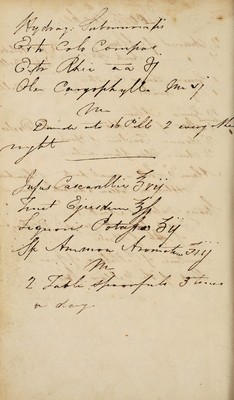 Hydrarg Submuriatis
Ext Colo Compos
Extr Rhei aa ʒj
Olei Caryophylli
M
2 every other
night
Infus Cascarillae ℥vij
Tinct Ejusdem ℥ſs
Liquoris Potassae ʒij
Sp Ammon Aromatic ʒiij
M
2 Table spoonfuls 3 times
a day